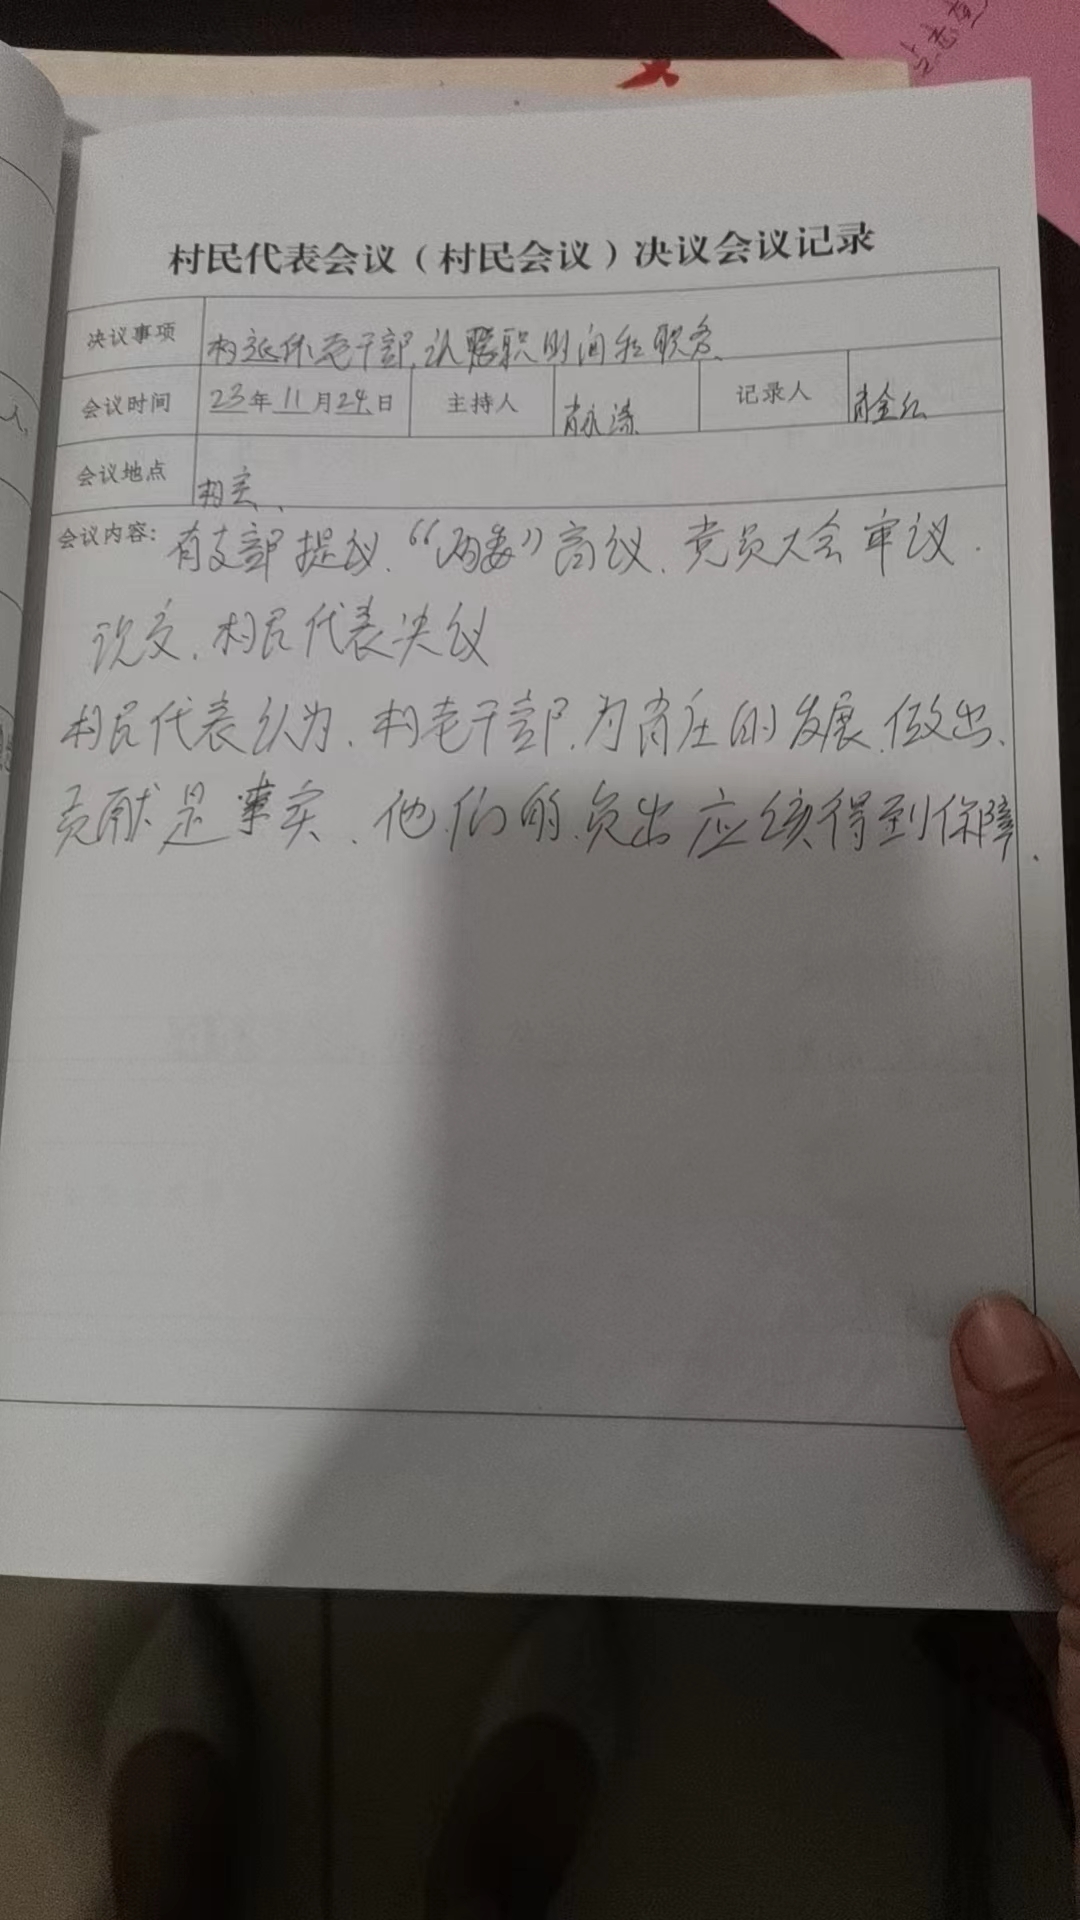 村民代表会议（村民会议）决议会议记录
决议事项 村退休老干部,认职时间和职务、
会议时间 23年11月24日 主持人 肖永 记录人 肖金
会议地点 村
会议内容: 有支部提议、“两委”商议、党员大会审议
村民代表决议
村民代表认为、村老干部、为肖庄的发展、做出、
贡献是事实、他们的出应该得到保障.